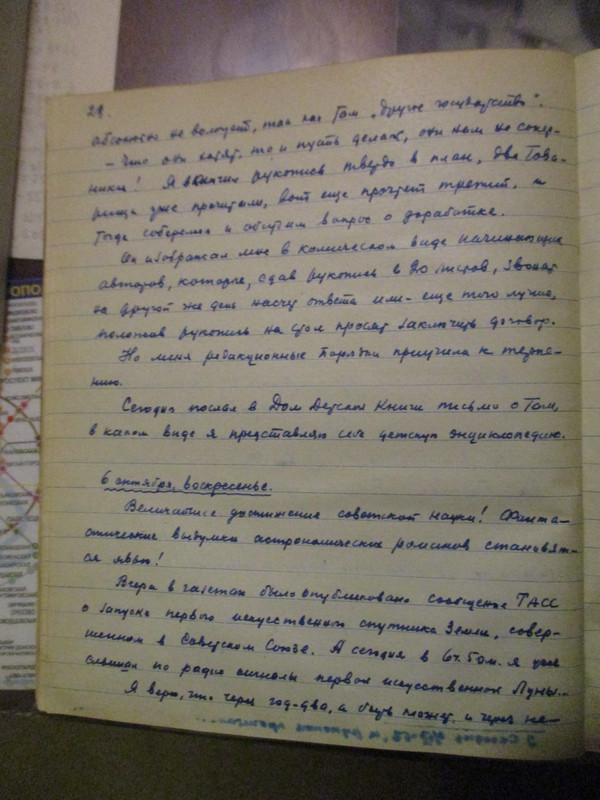 28.
абсолютно не волнует, так как там „другое государство“.
– Что они хотят, то и пусть делают, они нам не сопер-
ники! Я включил рукопись твердо в план, два това-
рища уже прочитали, вот еще прочтет третий, и
тогда соберемся и обсудим вопрос о доработке.
Он изображал мне в комическом виде начинающих
авторов, которые, сдав рукопись в 20 листов, звонят
на другой же день насчет ответа или – еще того лучше,
положив рукопись на стол просят заключить договор.
Но меня редакционные порядки приучили к терпе-
нию.
Сегодня послал в Дом Детской Книги письмо о том,
в каком виде я представляю себе детскую энциклопедию.
6 октября, воскресенье.
Величайшее достижение советской науки! Фанта-
стические выдумки астрономических романов становят-
ся явью!
Вчера в газетах было опубликовано сообщение ТАСС
о запуске первого искусственного спутника Земли, совер-
шенном в Советском Союзе. А сегодня в 6 ч. 50 м. я уже
слышал по радио сигналы первой искусственной Луны...
Я верю, что через год-два, а быть может, и через не-
ОПО